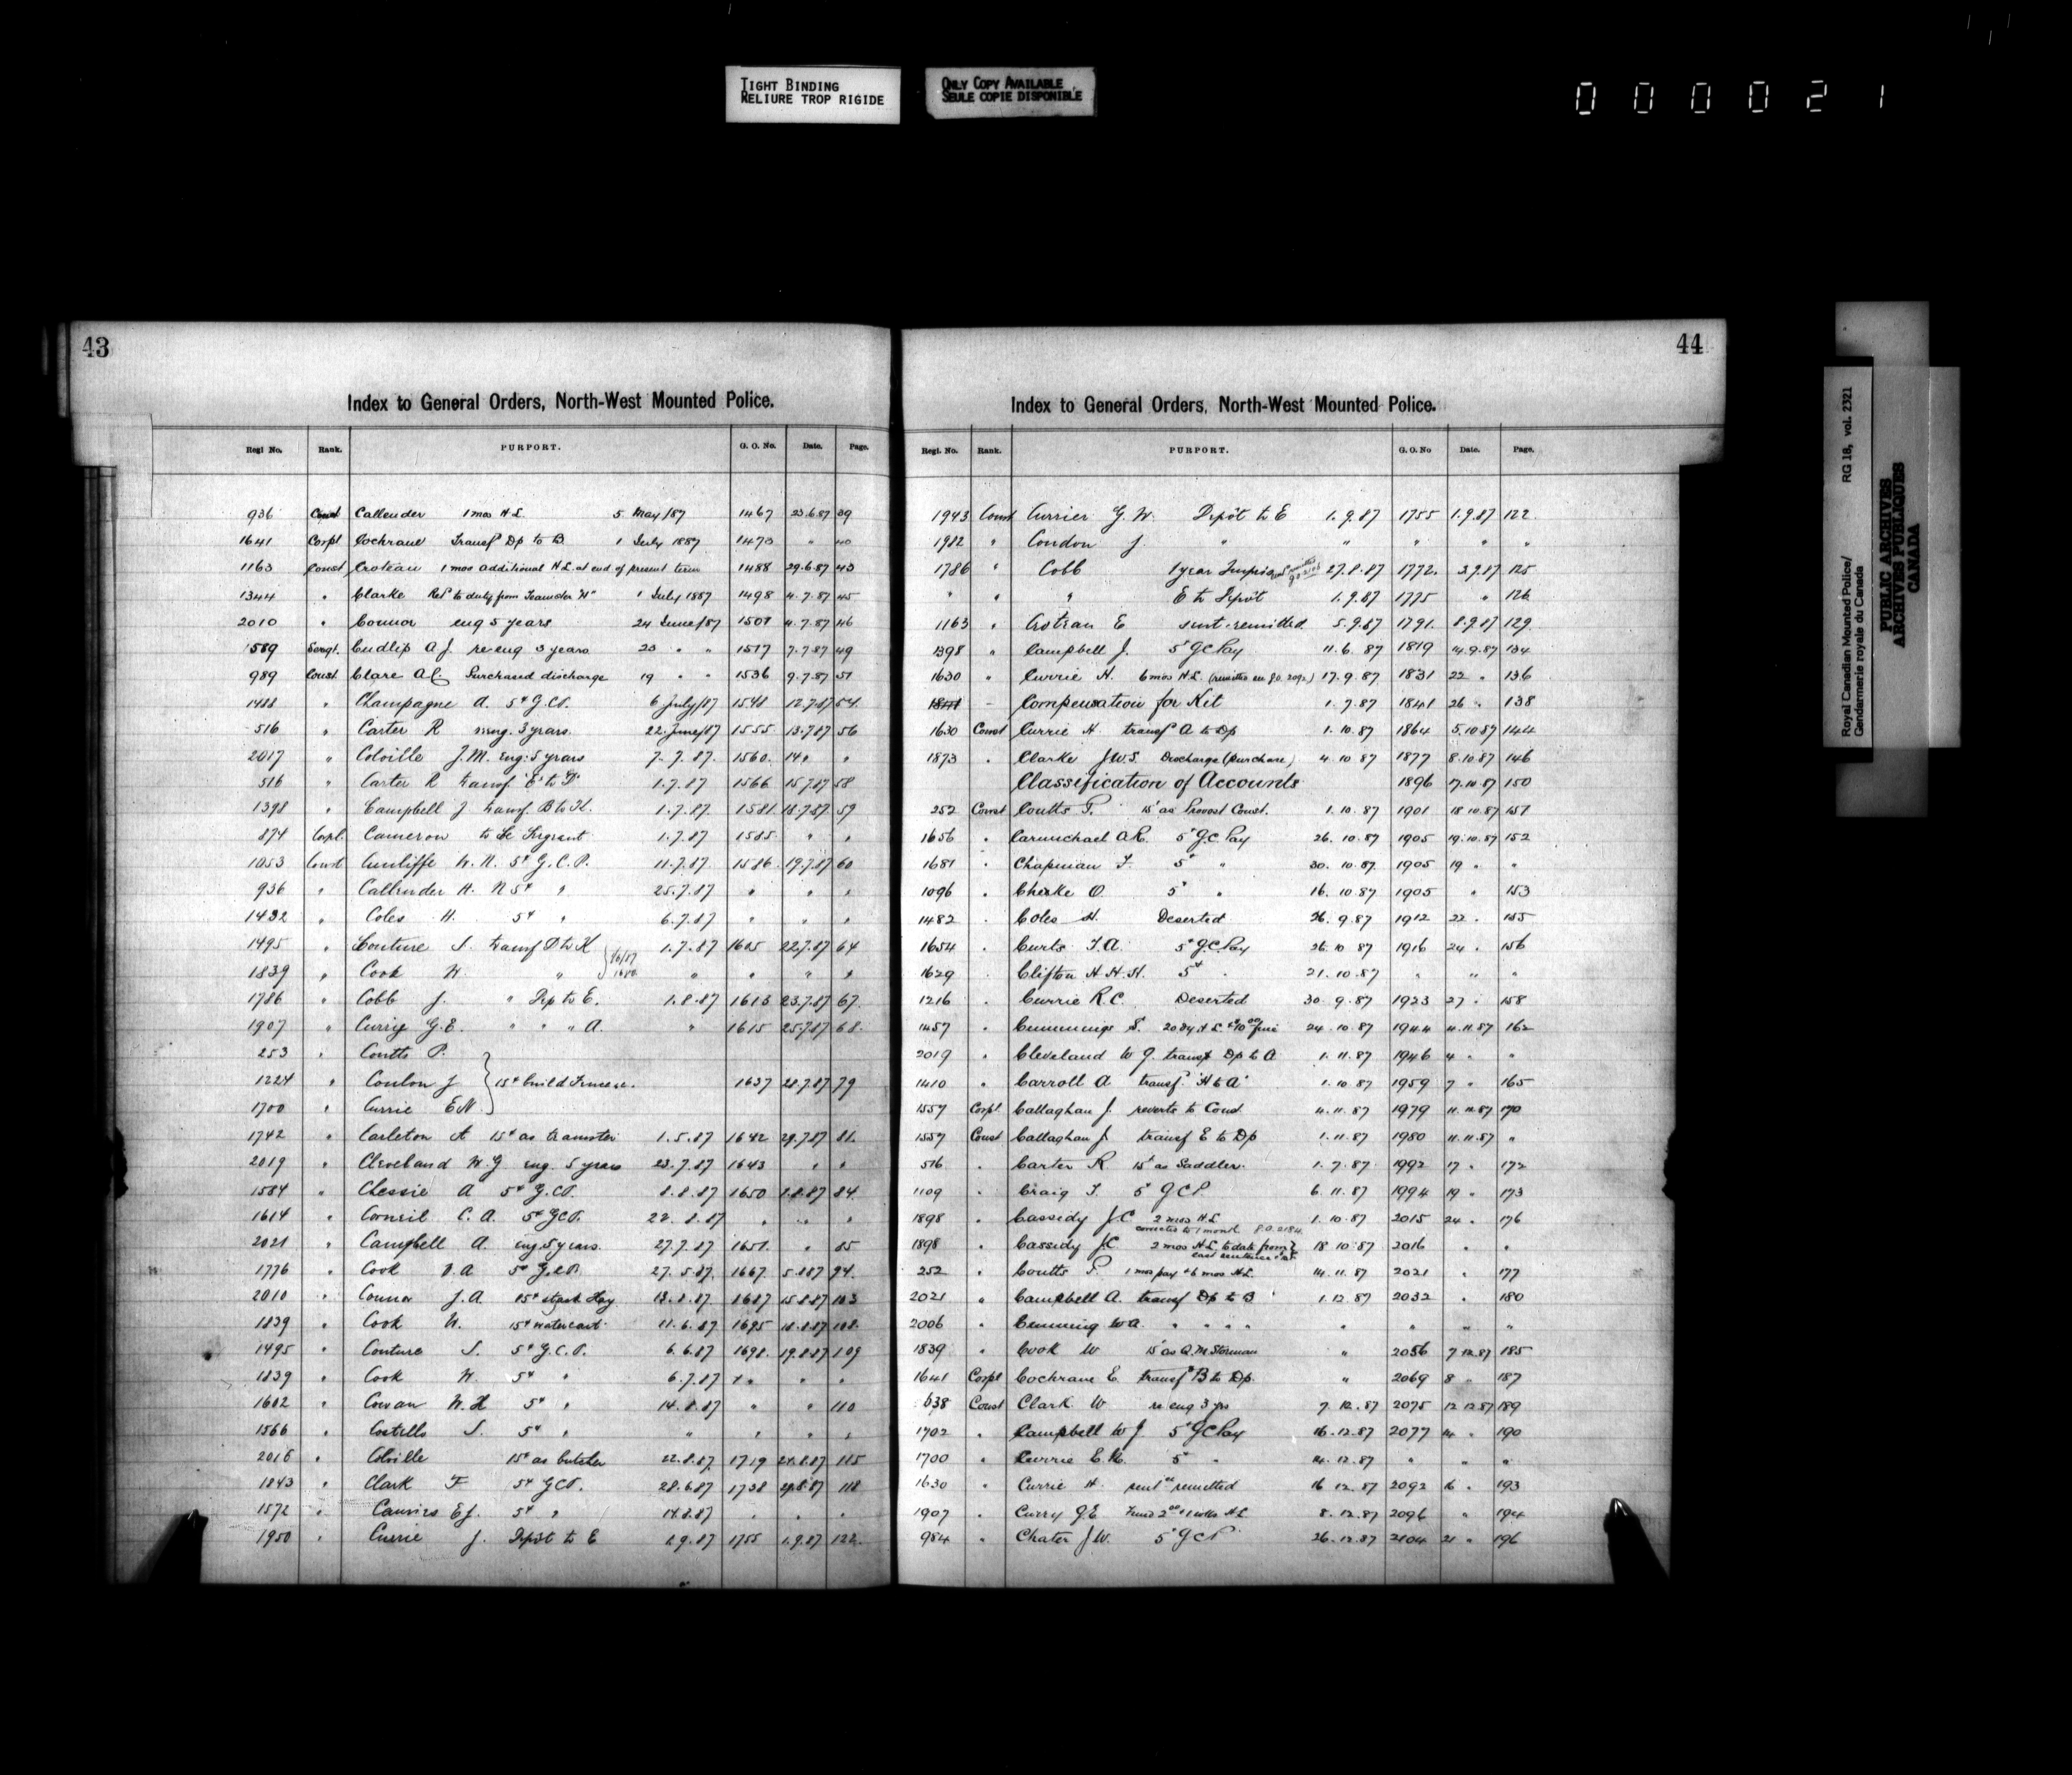 TIGHT BINDING
RELIURE TROP RIGIDE
ONLY COPY AVAILABLE
SEULE COPIE DISPONIBLE
000021
43
Index to General Orders, North-West Mounted Police.
Regl No. Rank. PURPORT. G. O. No. Date. Page.
936 Const Callender 1 mos H.L. 5 May/87 1467 23.6.87 39
1641 Corpl Cochrane Transf Dp to B 1 July 1887 1473 " 40
1163 Const Croteau 1 mos additional H.L. at end of present term 1488 29.6.87 43
1344 " Clarke Ret to duty from Teamster "H" 1 July 1887 1498 4.7.87 45
2010 " Connor eng 5 years 24 June/87 1507 4.7.87 46
1589 Sergt. Cudlip A J. re eng 3 years 23 " " 1517 7.7.87 49
989 Const Clare A C. Purchased discharge 19 " " 1536 9.7.87 51
1488 " Champagne A. 5¢ G.C.P. 6 July/87 1548 12.7.87 54
516 " Carter R reeng. 3 years 22 June/87 1555 13.7.87 56
2017 " Colville J.M. eng. 5 years 7.7.87. 1560. 14 " "
516 " Carter R transf "E" to "D" 1.7.87 1566 15.7.87 58
1398 " Campbell J transf B to H. 1.7.87. 1581. 18.7.87 59
874 Corpl Cameron to be Sergeant 1.7.87 1585 " "
1053 Const Cunliffe W. N. 5¢ G.C.P. 11.7.87. 1586. 19.7.87 60
936 " Callender H. N 5¢ " 25.7.87 " " "
1482 " Coles H. 5¢ " 6.7.87 " " "
1495 " Couture S. transf D to K 1.7.87 1605 22.7.87 64
1839 " Cook W. " " " " "
1786 " Cobb J. " Dep to E. 1.8.87 1613 23.7.87 67.
1907 " Curry G.E. " " " A. " 1615 25.7.87 68.
253 " Coutts P.
1224 " Coulon J 15¢ build Fences. 1637 28.7.87 79
1700 " Currie E N
1742 " Carleton A 15¢ as teamster 1.5.87 1642 29.7.87 81.
2019 " Cleveland W.G eng. 5 years 23.7.87 1643 " "
1584 " Chessie A 5¢ G.C.P. 8.8.87 1650 1.8.87 84.
1614 " Corneil C. A. 5¢ G.C.P. 22.8.87 " " "
2021 " Campbell A. eng 5 years. 27.7.87 1651. " 85
1776 " Cook A 5¢ G.C.P. 27.5.87. 1667. 5.8.87 94.
2010 " Connor J.A. 15¢ stack Hay 13.8.87. 1687 15.8.87 103
1839 " Cook W. 15¢ watercart 11.6.87 1695 18.8.87 108.
1495 " Couture S. 5¢ G.C.P. 6.6.87 1698. 19.8.87 109
1839 " Cook W. 5¢ " 6.7.87 " " "
1602 " Cowan W.H 5¢ " 14.8.87 " " 110
1566 " Costello S. 5¢ " " " " "
2016 " Colville 15¢ as butcher 22.8.87. 1719 24.8.87 115
1843 " Clark F 5¢ G.C.P. 28.6.87 1738 29.8.87 118
1572 " E J. 5¢ " 14.8.87 " " "
1950 " Currie J. Depôt to E 1.9.87 1755 1.9.87 122.
44
Index to General Orders, North-West Mounted Police.
Regl. No. Rank. PURPORT. G. O. No Date. Page.
1943 Const Currier G. W. Depôt to E 1.9.87 1755 1.9.87 122.
1982 " Condon J. " " " " "
1786 " Cobb 1 year 27.8.87 1772. 3.9.87 125
" " " E to Depôt 1.9.87 1775 " 126
1163 " Croteau E sent. remitted 5.9.87 1791. 8.9.87 129
1398 " Campbell J. 5¢ G C Pay 11.6.87 1819 14.9.87 134
1630 " Currie H. 6 mos H.L. (remitted in G.O. 2092) 17.9.87 1831 22 " 136
1841 – Compensation for Kit 1.7.87 1841 26 " 138
1630 Const Currie H transf A to Dp 1.10.87 1864 5.10.87 144
1873 " Clarke J.W.S Discharge (purchase) 4.10.87 1877 8.10.87 146
Classification of Accounts 1896 17.10.87 150
252 Const Coutts P. 15¢ as Provost Const. 1.10.87 1901 18.10.87 151
1656 " Carmichael A.R. 5¢ G.C. Pay 26.10.87 1905 19.10.87 152
1681 " Chapman F. 5¢ " 30.10.87 1905 19 " "
1096 " Cheake O. 5¢ " 16.10.87 1905 " 153
1482 " Coles H. Deserted 26.9.87 1912 22 " 155
1654 " Curts F.A. 5¢ G.C. Pay 26.10.87 1916 24 " 156
1629 Clifton H.H.H. 5¢ " 21.10.87 " " "
1216 " Currie R.C. Deserted 30.9.87 1923 27 " 158
1457 " Cummings S. 20 dy H.L. & $10.00 fine 24.10.87 1944 4.11.87 162
2019 " Cleveland W G. transf Dp to A 1.11.87 1946 4 " "
1410 " Carroll A transf. "H to A" 1.10.87 1959 7 " 165
1557 Corpl. Callaghan J. reverts to Const. 4.11.87 1979 11.11.87 170
1557 Const Callaghan J. transf E to Dp 1.11.87 1980 11.11.87 "
516 " Carter R 15¢ as Saddler. 1.7.87 1992 17 " 172
1109 " Craig T. 5¢ G C P. 6.11.87 1994 19 " 173
1898 " Cassidy J C 2 mos H.L. 1.10.87 2015 24 " 176
corrected to 1 month G.O. 2184
1898 " Cassidy J.C 2 mos H.L. to date from 18.10.87 2016 " "
last sentence
252 " Coutts P. 1 mos pay & 6 mos H.L. 14.11.87 2021 " 177
2021 " Campbell A. transf Dp to B 1.12.87 2032 " 180
2006 " Cumming W A. " " " " " " " "
1839 " Cook W 15¢ as Q.M. Storeman " 2056 7.12.87 185
1641 Corpl Cochrane E. transf B to Dp. " 2069 8 " 187
638 Const Clark W re eng 3 yrs 7.12.87 2075 12.12.87 189
1702 " Campbell W J. 5¢ G C Pay 16.12.87 2077 14 " 190
1700 " Currie E.N. 5¢ " 24.12.87 " " "
1630 " Currie H. sent. remitted 16.12.87 2092 16 " 193
1907 " Curry G.E Fined 2.00 & 1 wks H.L 8.12.87 2096 " 194
984 " Chater J W. 5¢ G C P 26.12.87 2104 21 " 196
Royal Canadian Mounted Police/ RG 18, vol. 2321
Gendarmerie royale du Canada
PUBLIC ARCHIVES
ARCHIVES PUBLIQUES
CANADA